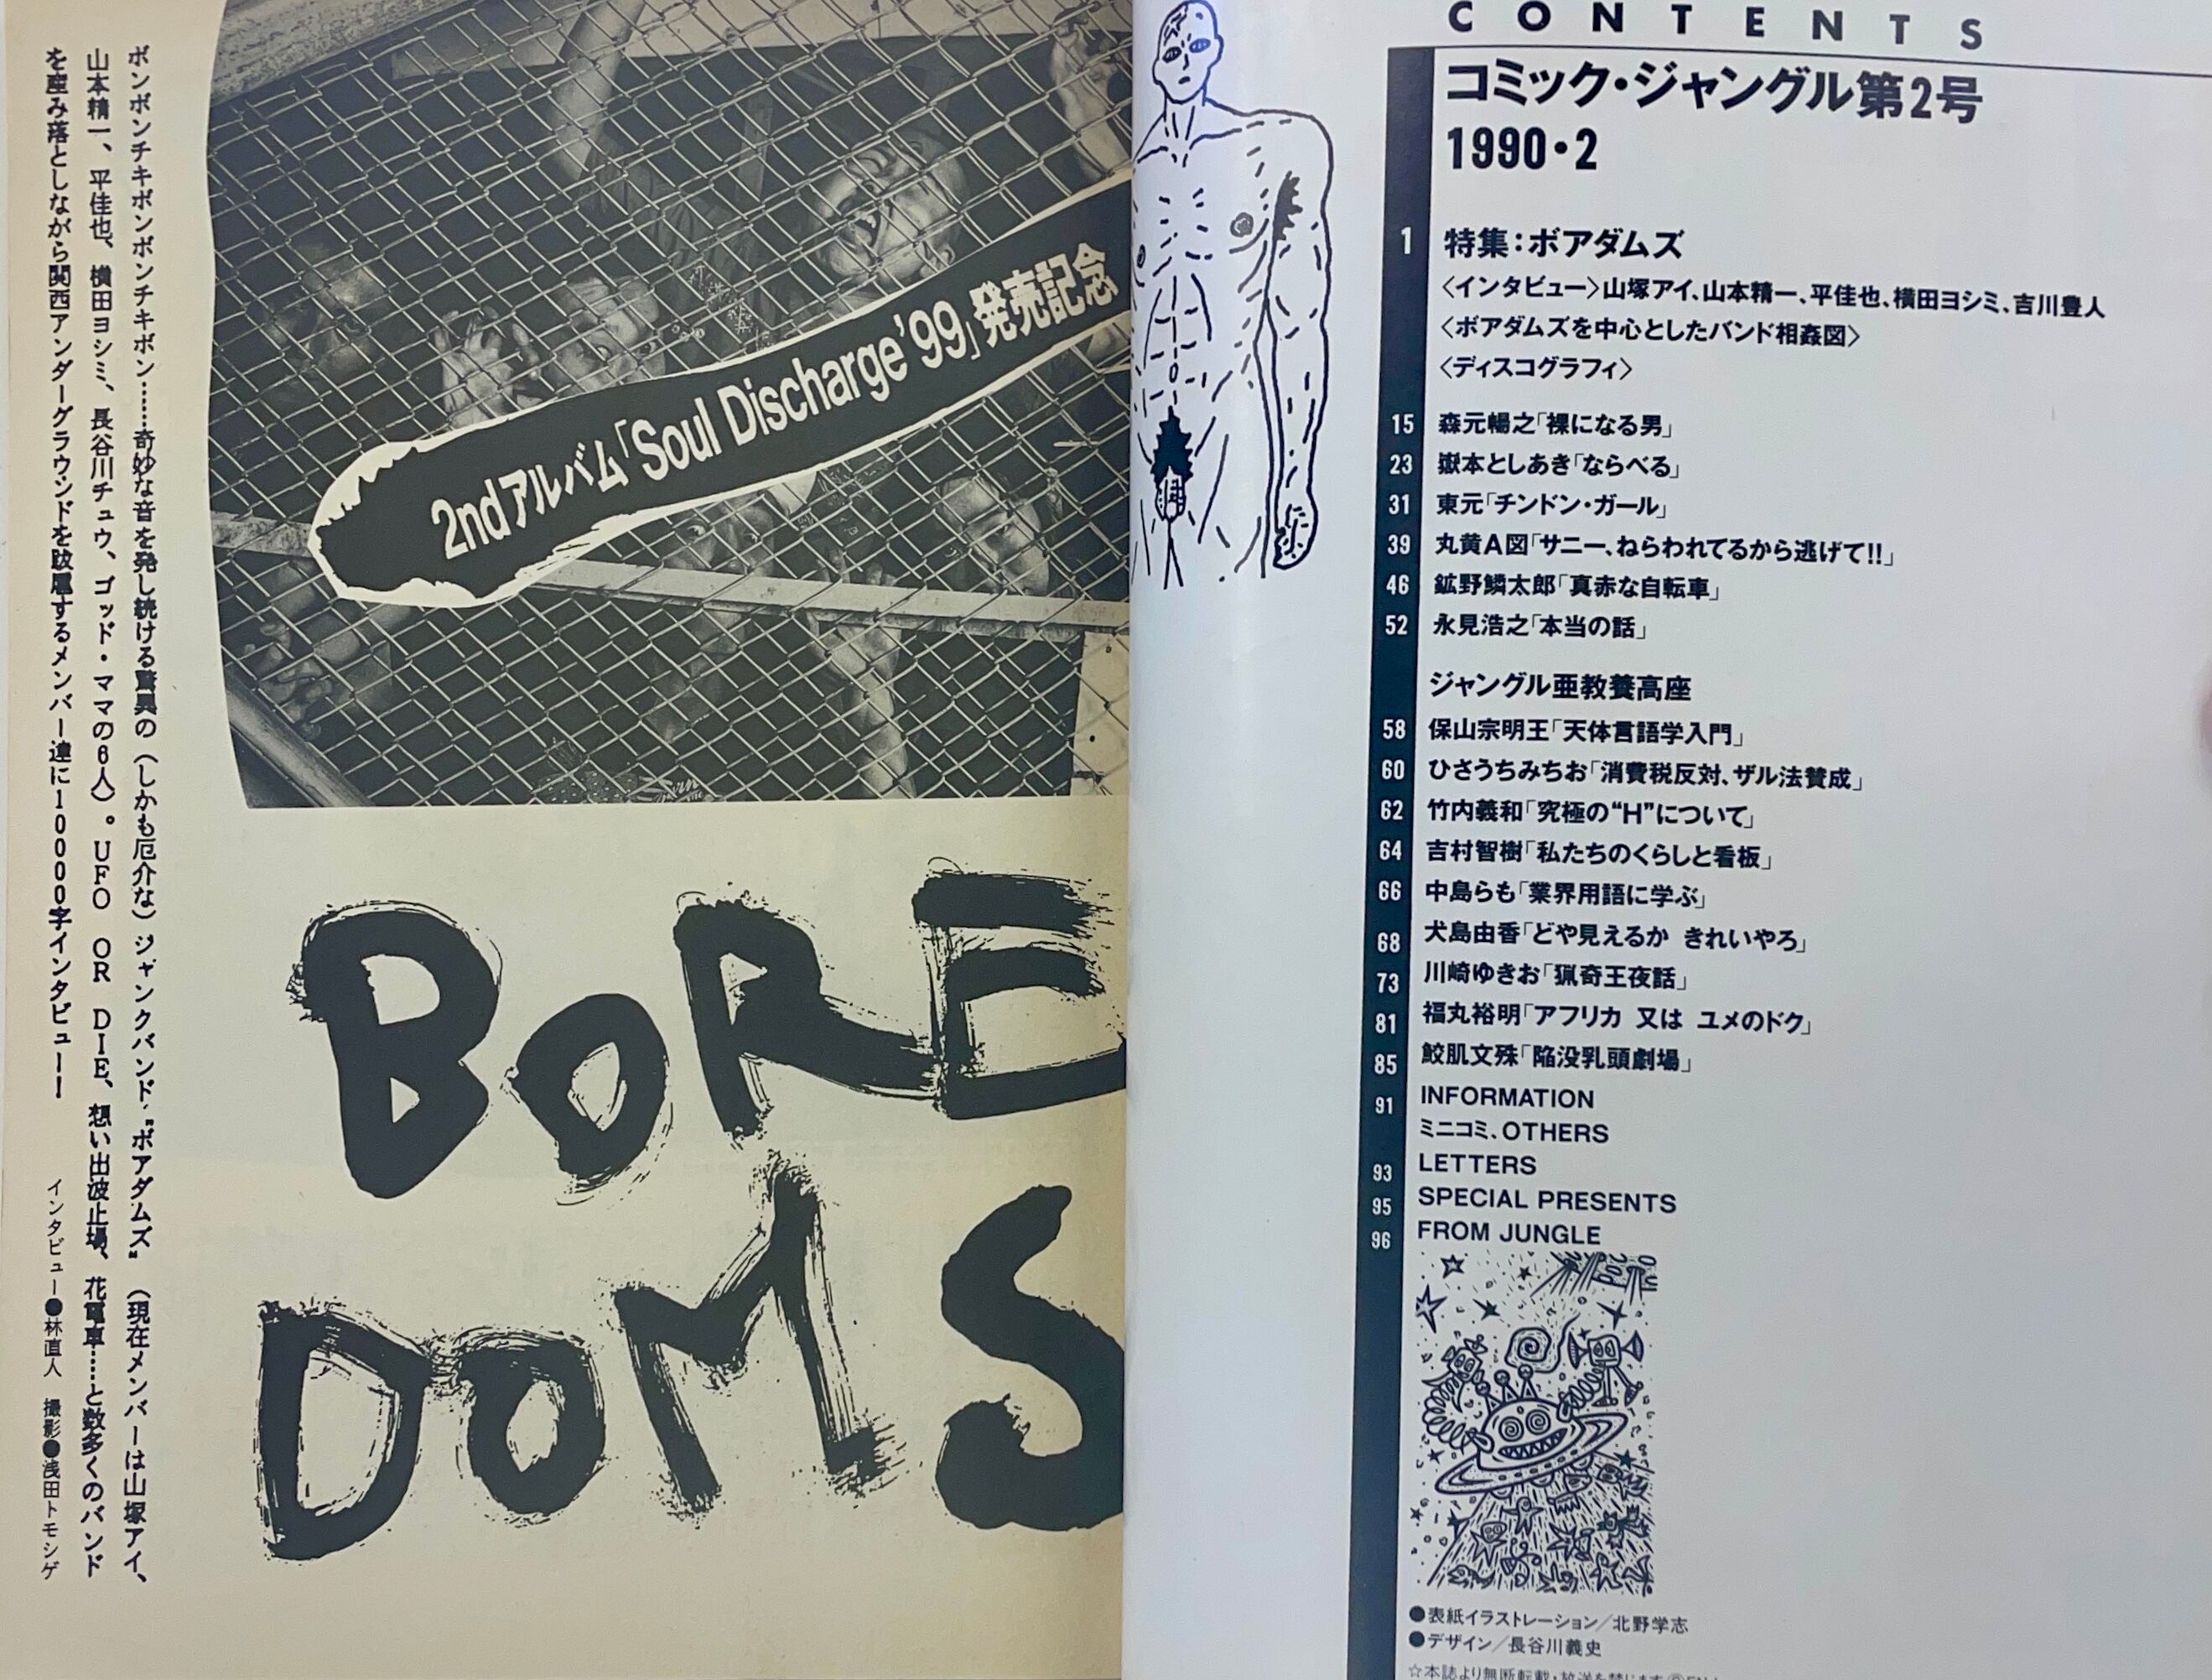 ボンボンチキボンボンボンチキボン……奇妙な音を発し続ける驚異の（しかも厄介な）ジャンクバンド〝ボアダムズ〟（現在メンバーは山塚アイ、
山本精一、平佳也、横田ヨシミ、長谷川チュウ、ゴッド・ママの6人）。UFO OR DIE、想い出波止場、花電車……と数多くのバンド
を産み落としながら関西アンダーグラウンドを跋扈するメンバー達に10000字インタビュー！
インタビュー●林直人 撮影●浅田トモシゲ
2ndアルバム「Soul Discharge'99」発売記念
BORE
DOMS
CONTENTS
コミック・ジャングル第2号
1990・2
1 特集：ボアダムズ
〈インタビュー〉山塚アイ、山本精一、平佳也、横田ヨシミ、吉川豊人
〈ボアダムズを中心としたバンド相姦図〉
〈ディスコグラフィ〉
15 森元暢之「裸になる男」
23 嶽本としあき「ならべる」
31 東元「チンドン・ガール」
39 丸黄A図「サニー、ねらわれてるから逃げて!!」
46 鉱野鱗太郎「真赤な自転車」
52 永見浩之「本当の話」
ジャングル亜教養高座
58 保山宗明王「天体言語学入門」
60 ひさうちみちお「消費税反対、ザル法賛成」
62 竹内義和「究極の“H”について」
64 吉村智樹「私たちのくらしと看板」
66 中島らも「業界用語に学ぶ」
68 犬島由香「どや見えるか きれいやろ」
73 川崎ゆきお「猟奇王夜話」
81 福丸裕明「アフリカ 又は ユメのドク」
85 鮫肌文殊「陥没乳頭劇場」
91 INFORMATION
ミニコミ、OTHERS
93 LETTERS
95 SPECIAL PRESENTS
96 FROM JUNGLE
●表紙イラストレーション／北野学志
●デザイン／長谷川義史
☆本誌より無断転載・放送を禁じます